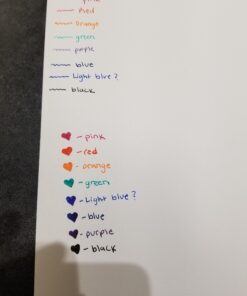 pink
Red
orange
green
purple
blue
Light blue?
black
- pink
- red
- orange
- green
- Light blue?
- blue
- purple
- black